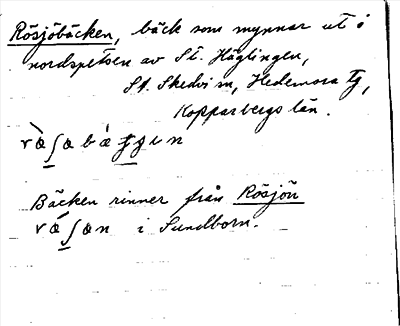 Rösjöbäcken, bäck som mynnar ut i
nordspetsen av St. Häglingen,
St. Skedvi sn, Hedemora tg,
Kopparbergs län.
Bäcken rinner från Rösjön
i Sundborn.